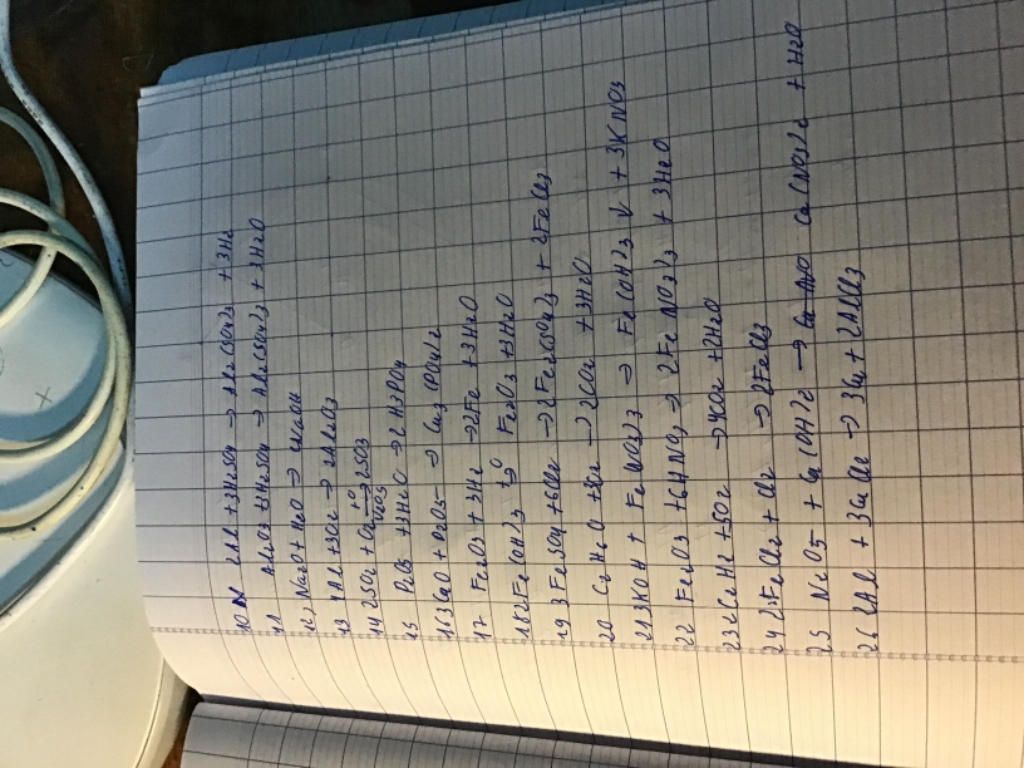 10 2Al + 3H2SO4 → Al2(SO4)3 + 3H2
11 Al2O3 + 3H2SO4 → Al2(SO4)3 + 3H2O
12, Na2O + H2O → 2NaOH
13 4Al + 3O2 → 2Al2O3
14 2SO2 + O2 t° → V2O5 2SO3
15 P2O5 + 3H2O → 2H3PO4
16 3CaO + P2O5 → Ca3(PO4)2
17 Fe2O3 + 3H2 → 2Fe + 3H2O
18 2Fe(OH)3 t° → Fe2O3 + 3H2O
19 3FeSO4 + Cl2 → 2Fe2(SO4)3 + 2FeCl3
20 C2H6O + 3O2 → 2CO2 + 3H2O
21 3KOH + Fe(NO3)3 → Fe(OH)3 ↓ + 3KNO3
22 Fe2O3 + 6HNO3 → 2Fe NO3)3 + 3H2O
23 2C2H2 + 5O2 → 4CO2 + 2H2O
24 2FeCl2 + Cl2 → 2FeCl3
25 N2O5 + Ca(OH)2 → Ca(NO3)2 + H2O
26 2Al + 3CuCl2 → 3Cu + 2AlCl3